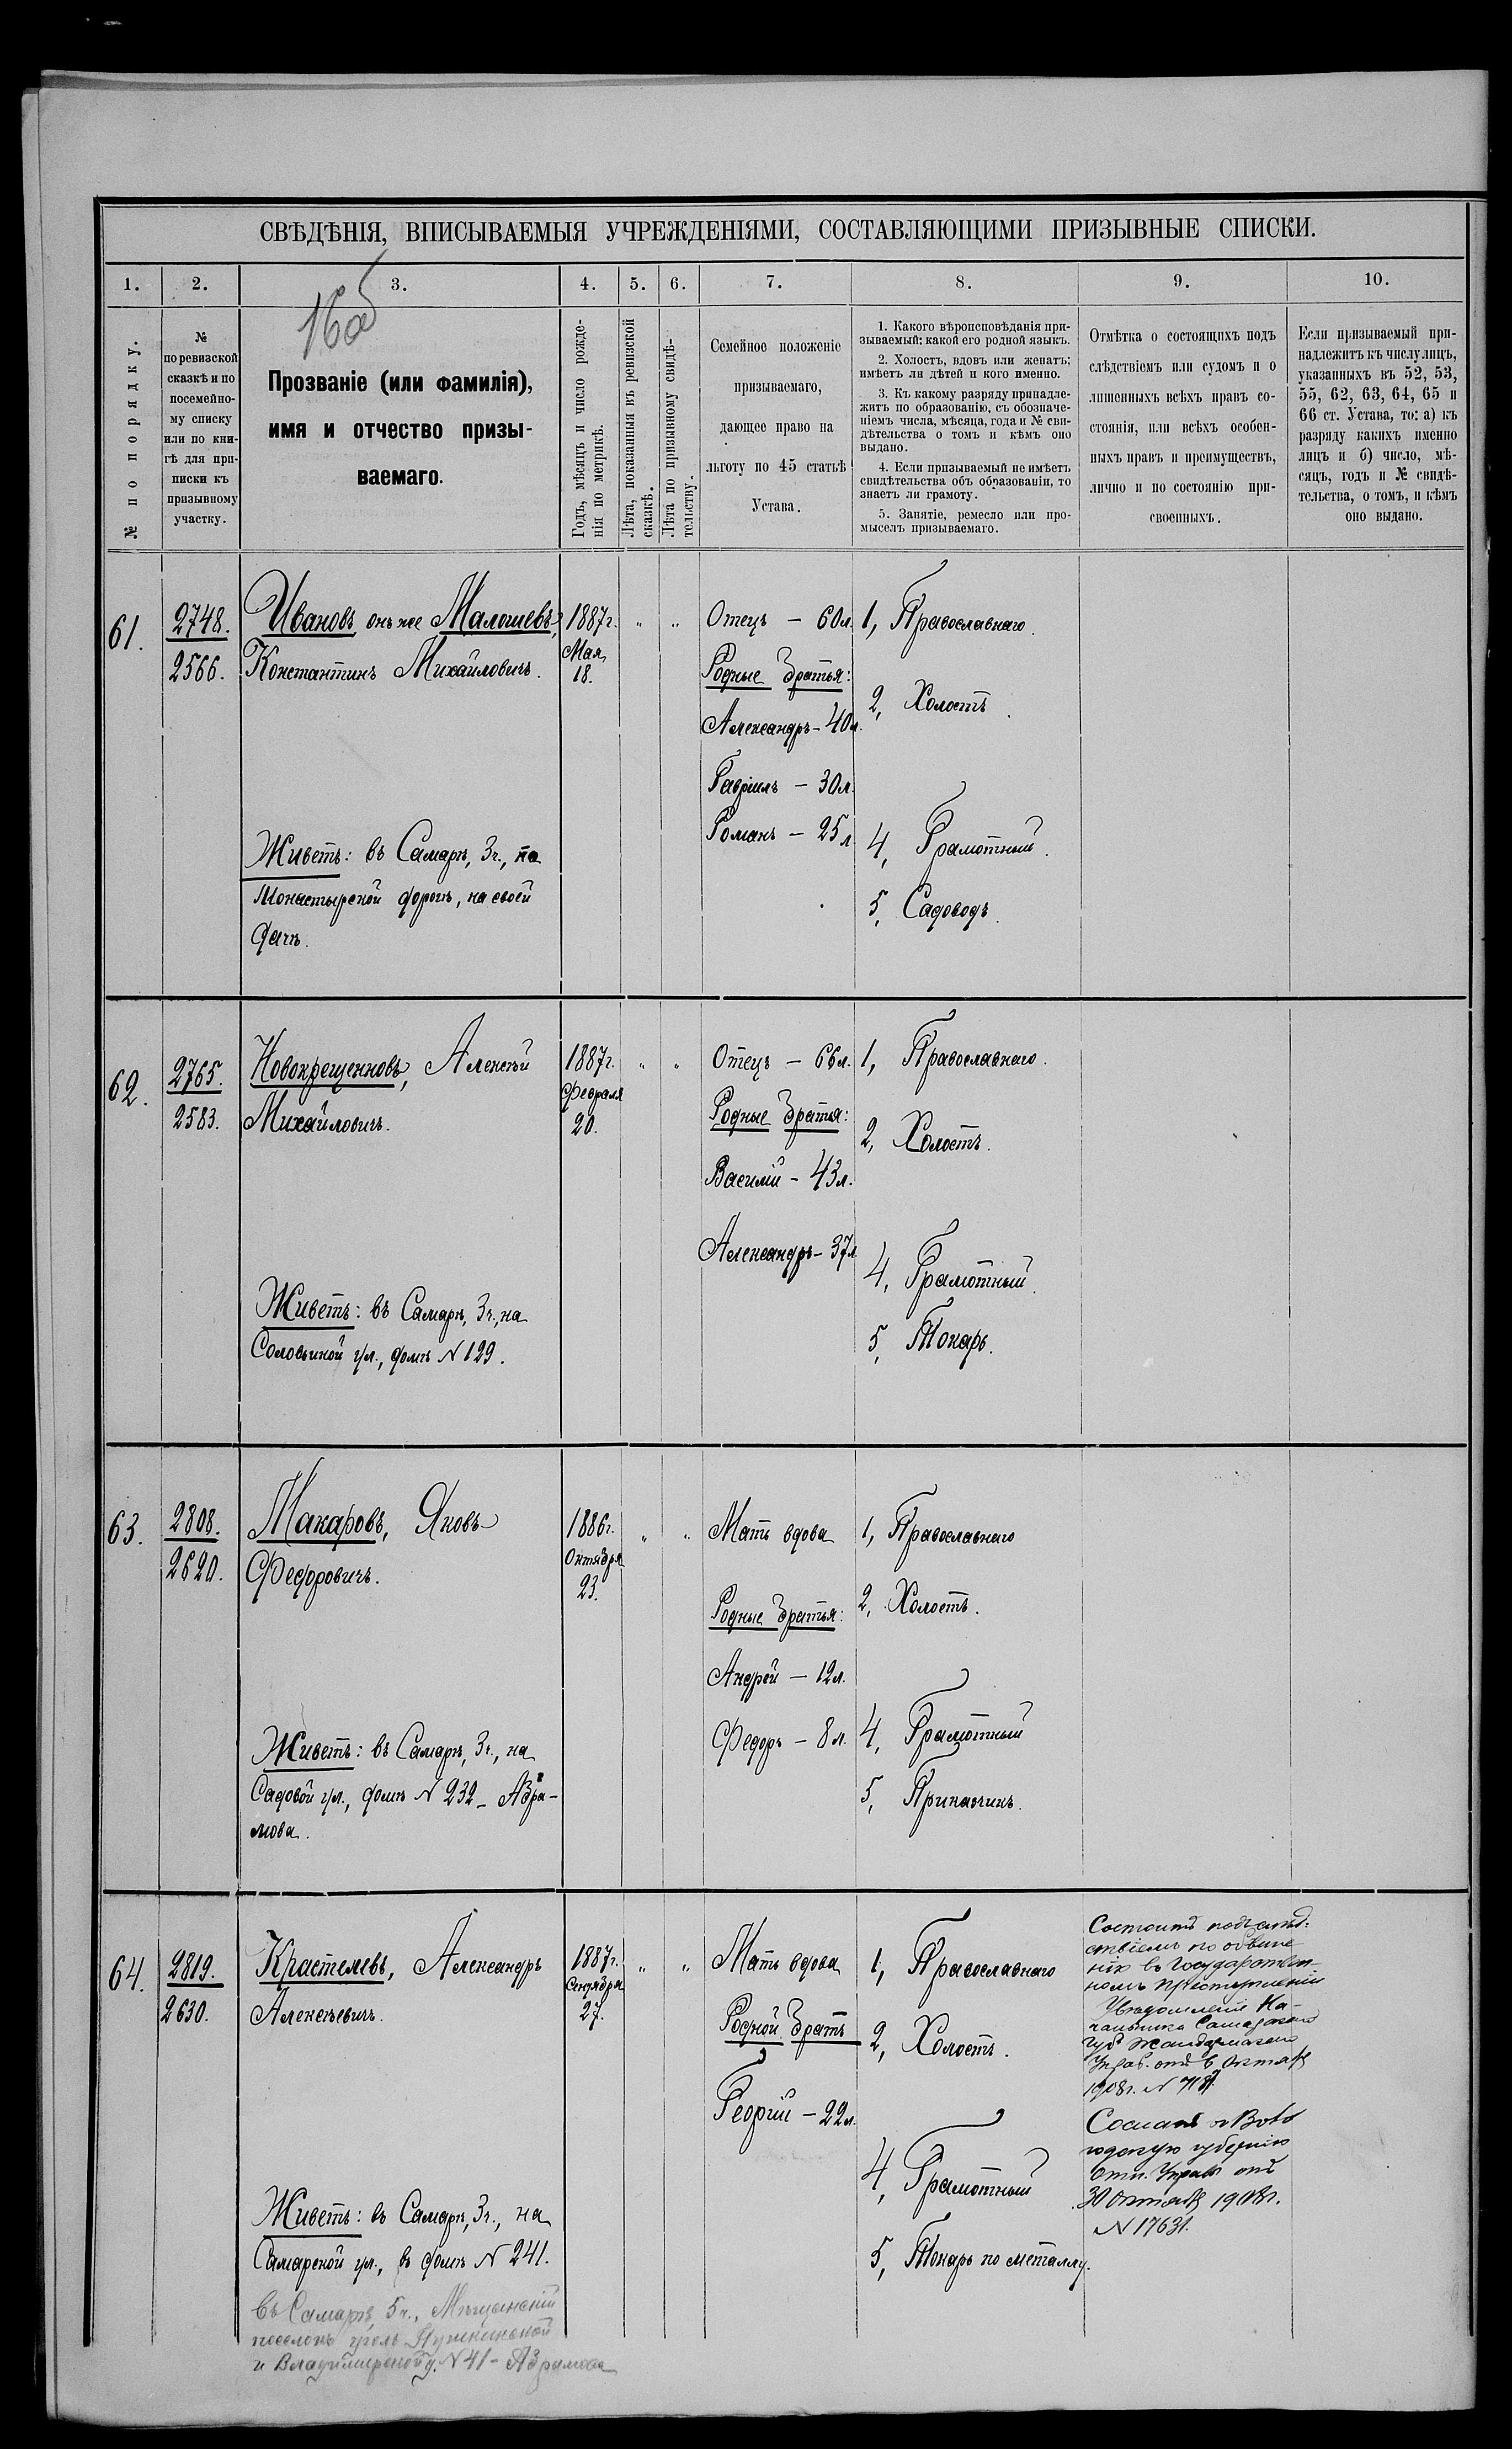 СВѢДѢНІЯ, ВПИСЫВАЕМЫЯ УЧРЕЖДЕНІЯМИ, СОСТАВЛЯЮЩИМИ ПРИЗЫВНЫЕ СПИСКИ.
1. 2. 3. 4. 5. 6. 7. 8. 9. 10.
16об
№ по порядку.
№
по ревизской
сказкѣ и по
посемейно-
му списку
или по кни-
гѣ для при-
писки къ
призывному
участку.
Прозваніе (или фамилія),
имя и отчество призы-
ваемаго.
Годъ, мѣсяцъ и число рожде-
нія по метрикѣ.
Лѣта, показанныя въ ревизской
сказкѣ.
Лѣта по призывному свидѣ-
тельству.
Семейное положеніе
призываемаго,
дающее право на
льготу по 45 статьѣ
Устава.
1. Какого вѣроисповѣданія при-
зываемый: какой его родной языкъ.
2. Холостъ, вдовъ или женатъ:
имѣетъ ли дѣтей и кого именно.
3. Къ какому разряду принадле-
житъ по образованію, съ обозначе-
ніемъ числа, мѣсяца, года и № сви-
дѣтельства о томъ и кѣмъ оно
выдано.
4. Если призываемый не имѣетъ
свидѣтельства объ образованіи, то
знаетъ ли грамоту.
5. Занятіе, ремесло или про-
мыселъ призываемаго.
Отмѣтка о состоящихъ подъ
слѣдствіемъ или судомъ и о
лишенныхъ всѣхъ правъ со-
стоянія, или всѣхъ особен-
ныхъ правъ и преимуществъ,
лично и по состоянію при-
своенныхъ.
Если призываемый при-
надлежитъ къ числу лицъ,
указанныхъ въ 52, 53,
55, 62, 63, 64, 65 и
66 ст. Устава, то: а) къ
разряду какихъ именно
лицъ и б) число, мѣ-
сяцъ, годъ и № свидѣ-
тельства, о томъ, и кѣмъ
оно выдано.
61.
2748.
2566.
Ивановъ онъ же Малошевъ,
Константинъ Михайловичъ.
Живетъ: въ Самарѣ, 3ч., на
Монастырской дорогѣ, на своей
дачѣ.
1887г.
Мая
18.
" "
Отецъ – 60л.
Родные братья:
Александръ – 40л.
Гавріилъ – 30л.
Романъ – 25л.
1, Православнаго.
2, Холостъ.
4, Грамотный.
5, Садоводъ.
62.
2765.
2583.
Новокрещенновъ, Алексѣй
Михайловичъ.
Живетъ: въ Самарѣ, 3ч., на
Соловьиной ул., домъ N 129.
1887г.
Февраля
20.
" "
Отецъ – 66л.
Родные братья:
Василій – 43л.
Александръ – 37л.
1, Православнаго.
2, Холостъ.
4, Грамотный.
5, Токарь.
63.
2808.
2620.
Макаровъ, Яковъ
Федоровичъ.
Живетъ: въ Самарѣ, 3ч., на
Садовой ул., домъ N 232 – Абра-
мова.
1886г.
Октября
23.
" "
Мать вдова
Родные братья:
Андрей – 12л.
Федоръ – 8л.
1, Православнаго
2, Холостъ.
4, Грамотный
5, Приказчикъ.
64.
2819.
2630.
Крастелевъ, Александръ
Алексѣевичъ.
Живетъ: въ Самарѣ, 3ч., на
Самарской ул., въ домѣ N 241.
въ Самарѣ, 5ч., Мѣщанскій
поселокъ уголъ Пушкинской
и Владимирской у. N 41 – Абрамова
1887г.
Сентября
27.
" "
Мать вдова
Родной братъ
Георгій – 22л.
1, Православнаго
2, Холостъ.
4, Грамотный
5, Токарь по металлу.
Состоитъ подъ слѣд-
ствіемъ по обвине
нію въ Государствен-
номъ преступленіи
Увѣдомленіе На-
чальника Самарскаго
Губ. Жандармскаго
Управ. отъ 6 Октяб
1908г. N
Сосланъ въ Воло
годскую губернію
Отн. Управ отъ
30 Октяб 1908г.
N 17631.